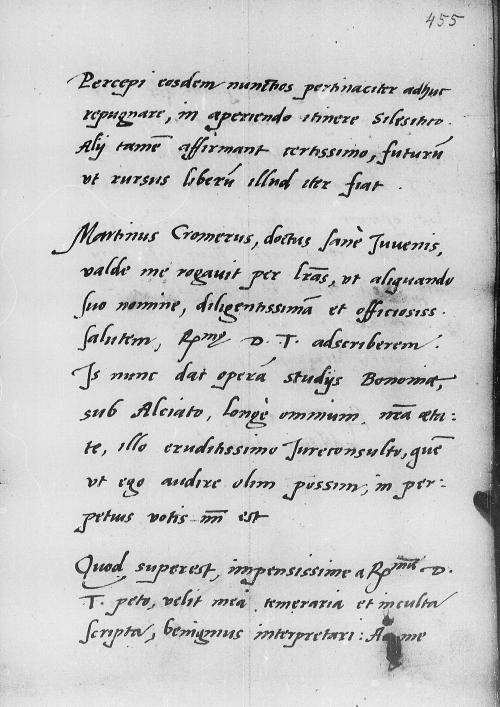 455
Percepi eosdem nunctios pertinaciter adhuc
repugnare, in aperiendo itinere Silesitico.
Alij tamē affirmant certissimo, futurū
vt rursus liberū illud iter fiat.
Martinus Cromerus, doctus sanè Juvenis,
valde me rogavit per lr̃as, vt aliquando
suo nomine, diligentissimā et officiosiss.
salutem, Rp̃me D. T. adscriberem.
Js nunc dat operā studijs Bononiæ,
sub Alciato, longè omnium, nr̃a æta:
te, illo eruditissimo Jureconsulto, quē
vt ego audire olim possim, in per-
petuis votis mihi est
Quod superest, impensissime a Rp̃ma D.
T. peto, velit mea temeraria et inculta
scripta, benignius interpretari: Ac me